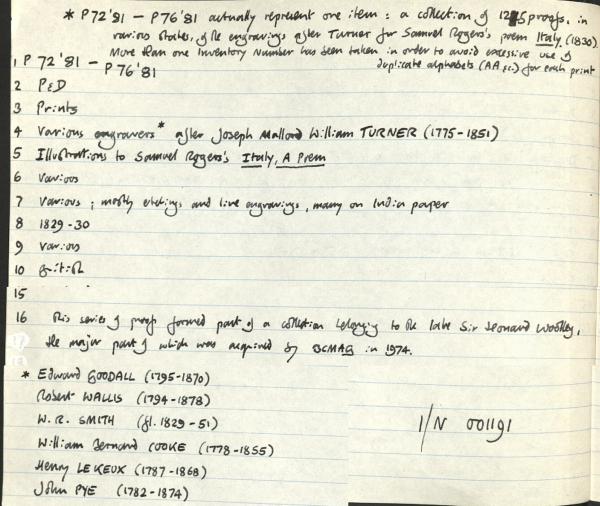 * P72'81 – P76'81 actually represent one item : a collection of 125 proofs, in
various states, of the engravings after Turner for Samuel Rogers's poem Italy (1830).
More than one Inventory Number has been taken in order to avoid excessive use of
duplicate alphabets (AA etc.) for each print
1 P 72'81 – P76'81
2 P&D
3 Prints
4 Various engravers* after Joseph Mallord William TURNER (1775-1851)
5 Illustrations to Samuel Rogers's Italy, A Poem
6 Various
7 Various ; mostly etchings and line engravings, many on India paper
8 1829-30
9 Various
10 British
15
16 This series of proofs formed part of a collection belonging to the late Sir Leonard Woolley,
the major part of which was acquired by BCMAG in 1974.
* Edward GOODALL (1795-1870)
Robert WALLIS (1794-1878)
W. R. SMITH (fl. 1829-51)
William Bernard COOKE (1778-1855)
Henry LE KEUX (1787-1868)
John PYE (1782-1874)
I/N 001191